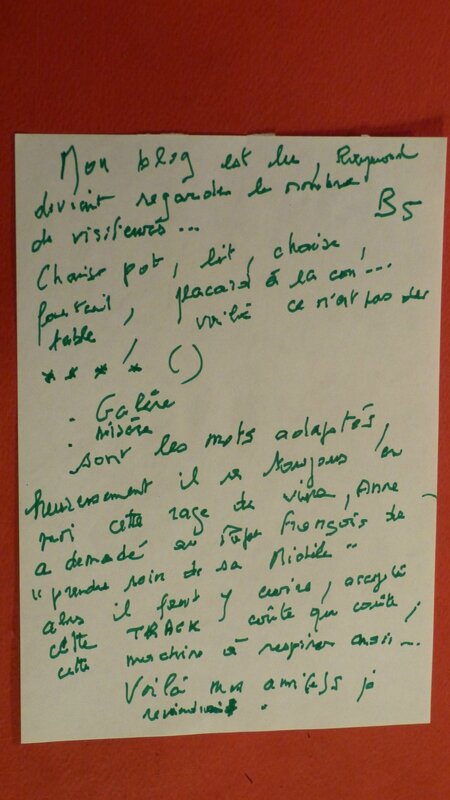 Mon blog est lu, Raymond
devient regarder le nombre
de visiteurs...
B5
Chaise pot, lit, chaise,
fauteuil, placard à la con...
table, voilà ce n'est pas des
* * * * ( )
. Galère
. Misère
sont les mots adaptés,
heureusement il y a toujours en
moi cette rage de vivre, Anne
a demandé au Pape François de
"prendre soin de sa Michèle"
alors il faut y croire,
cette TRACK coûte que coûte,
cette machine à respirer aussi...
Voilà mes ami(e)s je
reviendrai.